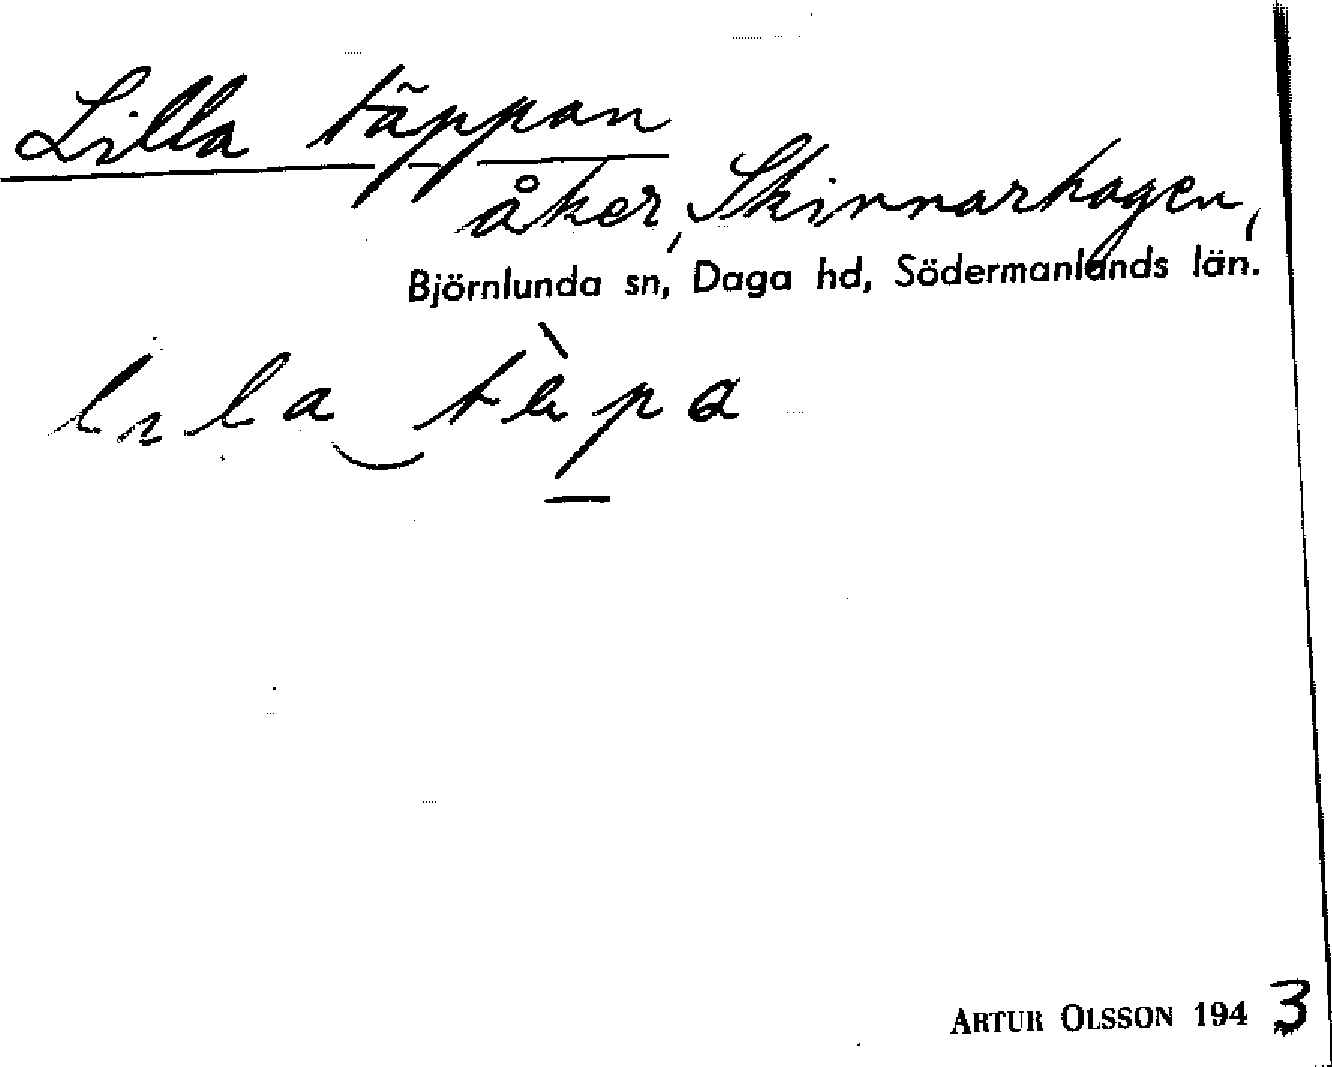 Lilla täppan
åker, Skinnarhagen,
Björnlunda sn, Daga hd, Södermanlands län.
lıla‿tὲpa
ARTUR OLSSON 1943